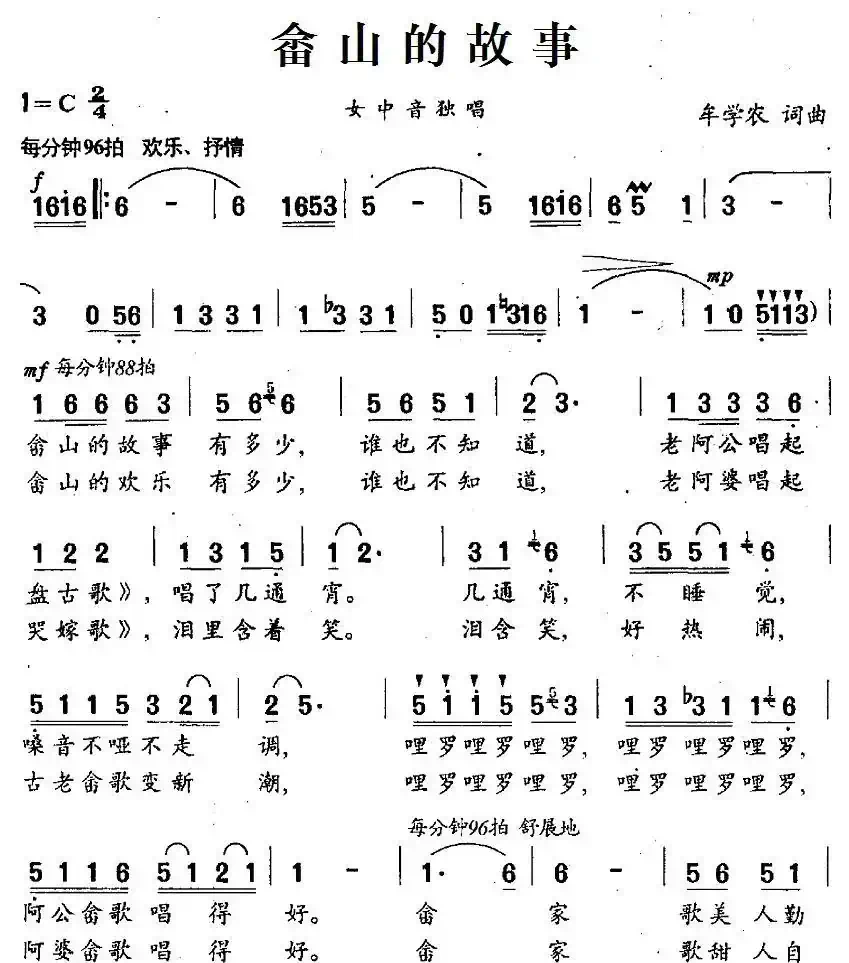 畲山的故事
1=C 2/4 女中音独唱 牟学农 词曲
每分钟96拍 欢乐、抒情
f
1616 ‖: 6 - | 6 1653 | 5 - | 5 1616 | 6 5 1 | 3 - |
3 0 56 | 1 3 3 1 | 1 ♭3 3 1 | 5 0 1 ♮316 | 1 - | 1 0 5113) |
mp
mf 每分钟88拍
1 6 6 6 3 | 5 6 5 6 | 5 6 5 1 | 2 3· | 1 3 3 3 6 |
畲山的故事 有多少, 谁也不知 道, 老阿公唱起
畲山的欢乐 有多少, 谁也不知 道, 老阿婆唱起
1 2 2 | 1 3 1 5 | 1 2· | 3 1 1 6 | 3 5 5 1 1 6 |
盘古歌》, 唱了几通 宵。 几通宵, 不 睡 觉,
哭嫁歌》, 泪里含着 笑。 泪含笑, 好 热 闹,
5 1 1 5 3 2 1 | 2 5· | 5 1 1 5 5 5 3 | 1 3 ♭3 1 1 6 |
嗓音不哑不走 调, 哩罗哩罗哩罗, 哩罗哩罗哩罗,
古老畲歌变新 潮, 哩罗哩罗哩罗, 哩罗哩罗哩罗,
每分钟96拍 舒展地
5 1 1 6 5 1 2 1 | 1 - | 1· 6 | 6 - | 5 6 5 1 |
阿公畲歌 唱 得 好。 畲 家 歌美人勤
阿婆畲歌 唱 得 好。 畲 家 歌甜人自